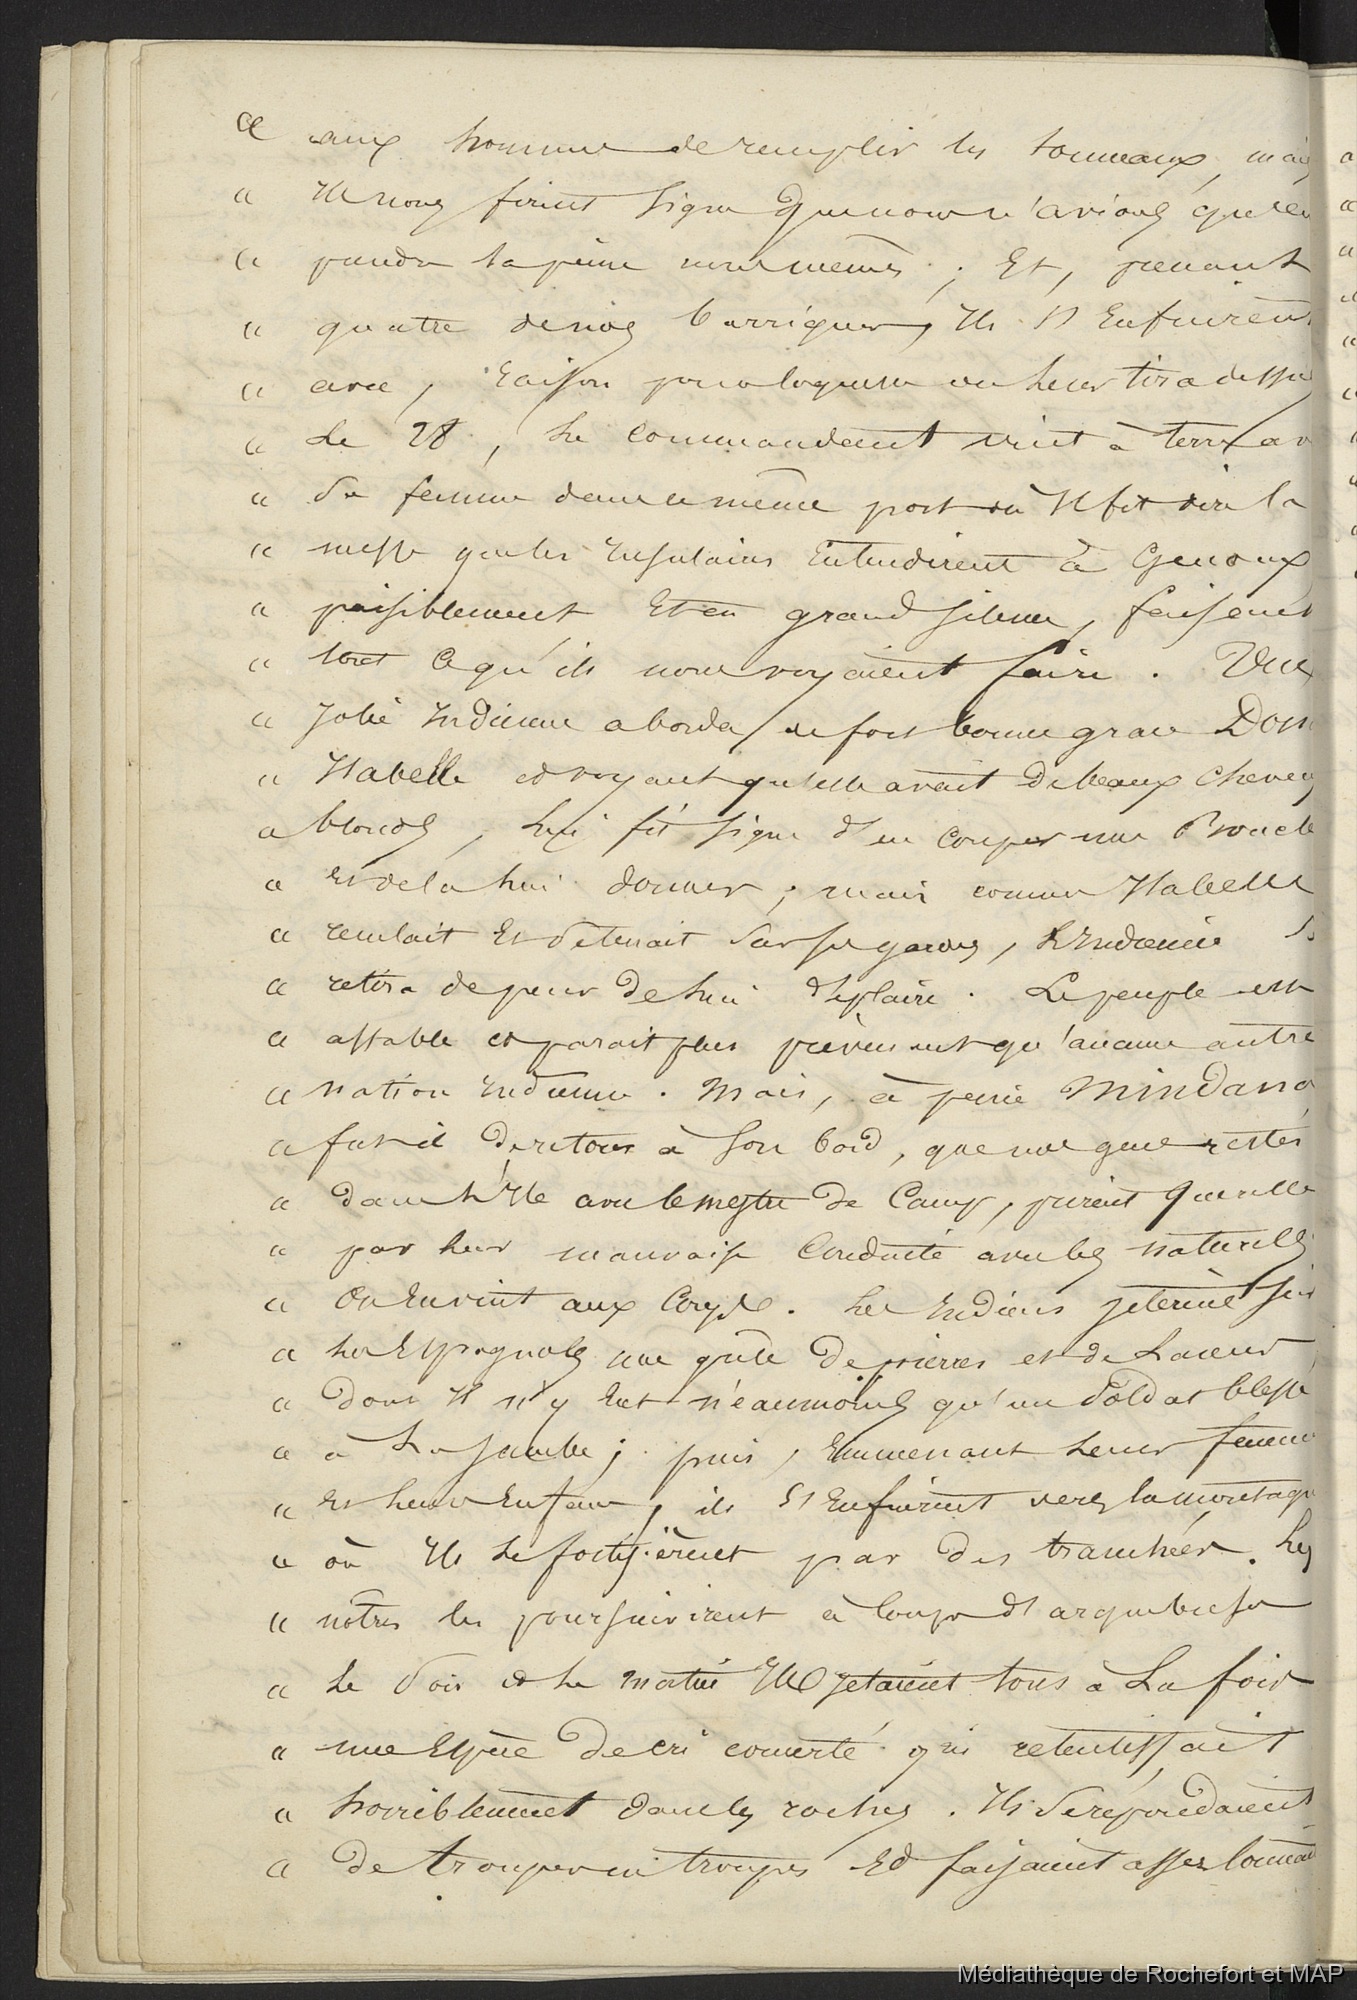 « aux hommes de remplir les tonneaux, mais
« Ils nous firent signe que nous n'avions qu'à en
« prendre la peine nous mêmes ; Et, prenant
« quatre de nos barriques, Ils s'Enfuirent
« avec, raison pour laquelle on leur tira dessus
« Le 28, Le Commandant vint à terre av
« Sa femme dans ce même port où Il fit dire la
« messe que les Insulaires Entendirent à Genoux
« paisiblement Et en grand silence, faisant
« tout ce qu'ils nous voyaient faire. Une
« Jolie Indienne aborda de fort bonne grace Dona
« Isabelle et voyant qu'elle avait de beaux cheveux
« blonds, Lui fit signe d'en couper une Boucle
« Et de la Lui donner ; mais comme Isabelle
« reculait Et se tenait sur ses gardes, L'Indienne S
« retira de peur de Lui déplaire. Le peuple est
« affable et parait plus prévenant qu'aucune autre
« nation Indienne. Mais, à peine Mindana
« fut-il de retour à Son bord, que nos gens restés
« dans L'Ile avec le mestre de Camp, prirent querelle
« par leur mauvaise Conduite avec les naturels
« On En vint aux Coups. Les Indiens jetèrent sur
« Les Espagnols une grêle de pierres et de Lances,
« dont Il n'y Eut néanmoins qu'un Soldat blessé
« à La Jambe ; puis, Emmenant Leurs femmes
« Et Leurs Enfans, ils s'Enfuirent vers la montagne
« où Ils Se fortifièrent par des tranchées. Les
« nôtres les poursuivirent à Coups d'arquebuse
« Le Soir et Le Matin Ils jetaient tous à La fois
« une Espèce de cri concerté qui retentissait
« horriblement dans les roches. Ils Se répondaient
« De troupes en troupes Et faisaient assez connaî
Médiathèque de Rochefort et MAP